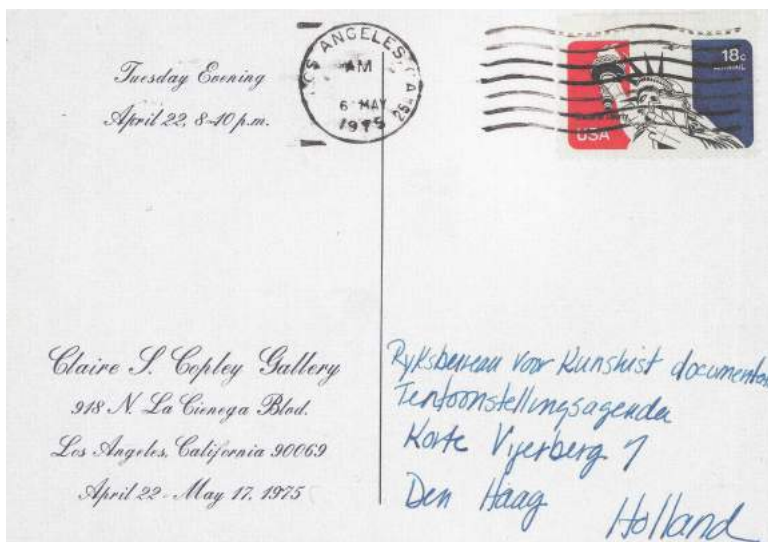 Tuesday Evening
April 22, 8-10 p.m.
LOS ANGELES, CA
AM
6 MAY
1975
18c
AIRMAIL
USA
Claire S. Copley Gallery
918 N. La Cienega Blvd.
Los Angeles, California 90069
April 22 - May 17, 1975
Ryksbureau voor Kunsthist documentat
Tentoonstellingsagenda
Korte Vijverberg 7
Den Haag
Holland